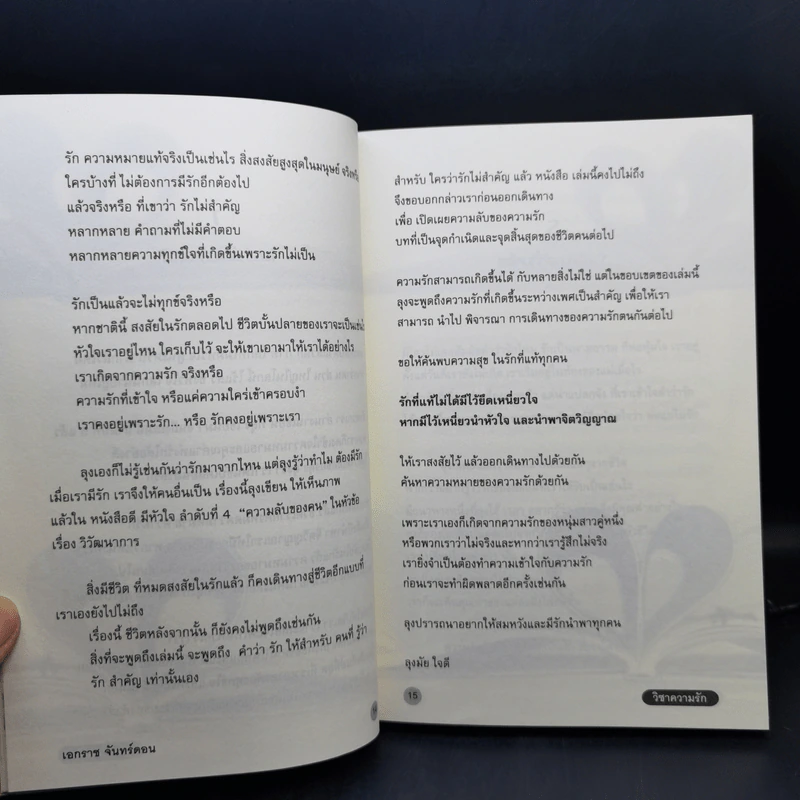 รัก ความหมายแท้จริงเป็นเช่นไร สิ่งสงสัยสูงสุดในมนุษย์ จริงหรือ
ใครบ้างที่ ไม่ต้องการมีรักอีกต้องไป
แล้วจริงหรือ ที่เขาว่า รักไม่สำคัญ
หลากหลาย คำถามที่ไม่มีคำตอบ
หลากหลายความทุกข์ใจที่เกิดขึ้นเพราะรักไม่เป็น
รักเป็นแล้วจะไม่ทุกข์จริงหรือ
หากชาตินี้ สงสัยในรักตลอดไป ชีวิตบั้นปลายของเราจะเป็นเช่นไร
หัวใจเราอยู่ไหน ใครเก็บไว้ จะให้เขาเอามาให้เราได้อย่างไร
เราเกิดจากความรัก จริงหรือ
ความรักที่เข้าใจ หรือแค่ความใคร่เข้าครอบงำ
เราคงอยู่เพราะรัก... หรือ รักคงอยู่เพราะเรา
ลุงเองก็ไม่รู้เช่นกันว่ารักมาจากไหน แต่ลุงรู้ว่าทำไม ต้องมีรัก
เมื่อเรามีรัก เราจึงให้คนอื่นเป็น เรื่องนี้ลุงเขียน ให้เห็นภาพ
แล้วใน หนังสือดี มีหัวใจ ลำดับที่ 4 "ความลับของคน" ในหัวข้อ
เรื่อง วิวัฒนาการ
สิ่งมีชีวิต ที่หมดสงสัยในรักแล้ว ก็คงเดินทางสู่ชีวิตอีกแบบที่
เราเองยังไปไม่ถึง
เรื่องนี้ ชีวิตหลังจากนั้น ก็ยังคงไม่พูดถึงเช่นกัน
สิ่งที่จะพูดถึงเล่มนี้ จะพูดถึง คำว่า รัก ให้สำหรับ คนที่ รู้ว่า
รัก สำคัญ เท่านั้นเอง
เอกราช จันทร์ดอน
สำหรับ ใครว่ารักไม่สำคัญ แล้ว หนังสือ เล่มนี้คงไปไม่ถึง
จึงขอบอกกล่าวเราก่อนออกเดินทาง
เพื่อ เปิดเผยความลับของความรัก
บทที่เป็นจุดกำเนิดและจุดสิ้นสุดของชีวิตคนต่อไป
ความรักสามารถเกิดขึ้นได้ กับหลายสิ่งไม่ใช่ แต่ในขอบเขตของเล่มนี้
ลุงจะพูดถึงความรักที่เกิดขึ้นระหว่างเพศเป็นสำคัญ เพื่อให้เรา
สามารถ นำไป พิจารณา การเดินทางของความรักตนกันต่อไป
ขอให้ค้นพบความสุข ในรักที่แท้ทุกคน
รักที่แท้ไม่ได้มีไว้ยึดเหนี่ยวใจ
หากมีไว้เหนี่ยวนำหัวใจ และนำพาจิตวิญญาณ
ให้เราสงสัยไว้ แล้วออกเดินทางไปด้วยกัน
ค้นหาความหมายของความรักด้วยกัน
เพราะเราเองก็เกิดจากความรักของหนุ่มสาวคู่หนึ่ง
หรือพวกเราว่าไม่จริงและหากว่าเรารู้สึกไม่จริง
เรายิ่งจำเป็นต้องทำความเข้าใจกับความรัก
ก่อนเราจะทำผิดพลาดอีกครั้งเช่นกัน
ลุงปรารถนาอยากให้สมหวังและมีรักนำพาทุกคน
ลุงมัย ใจดี
15
วิชาความรัก